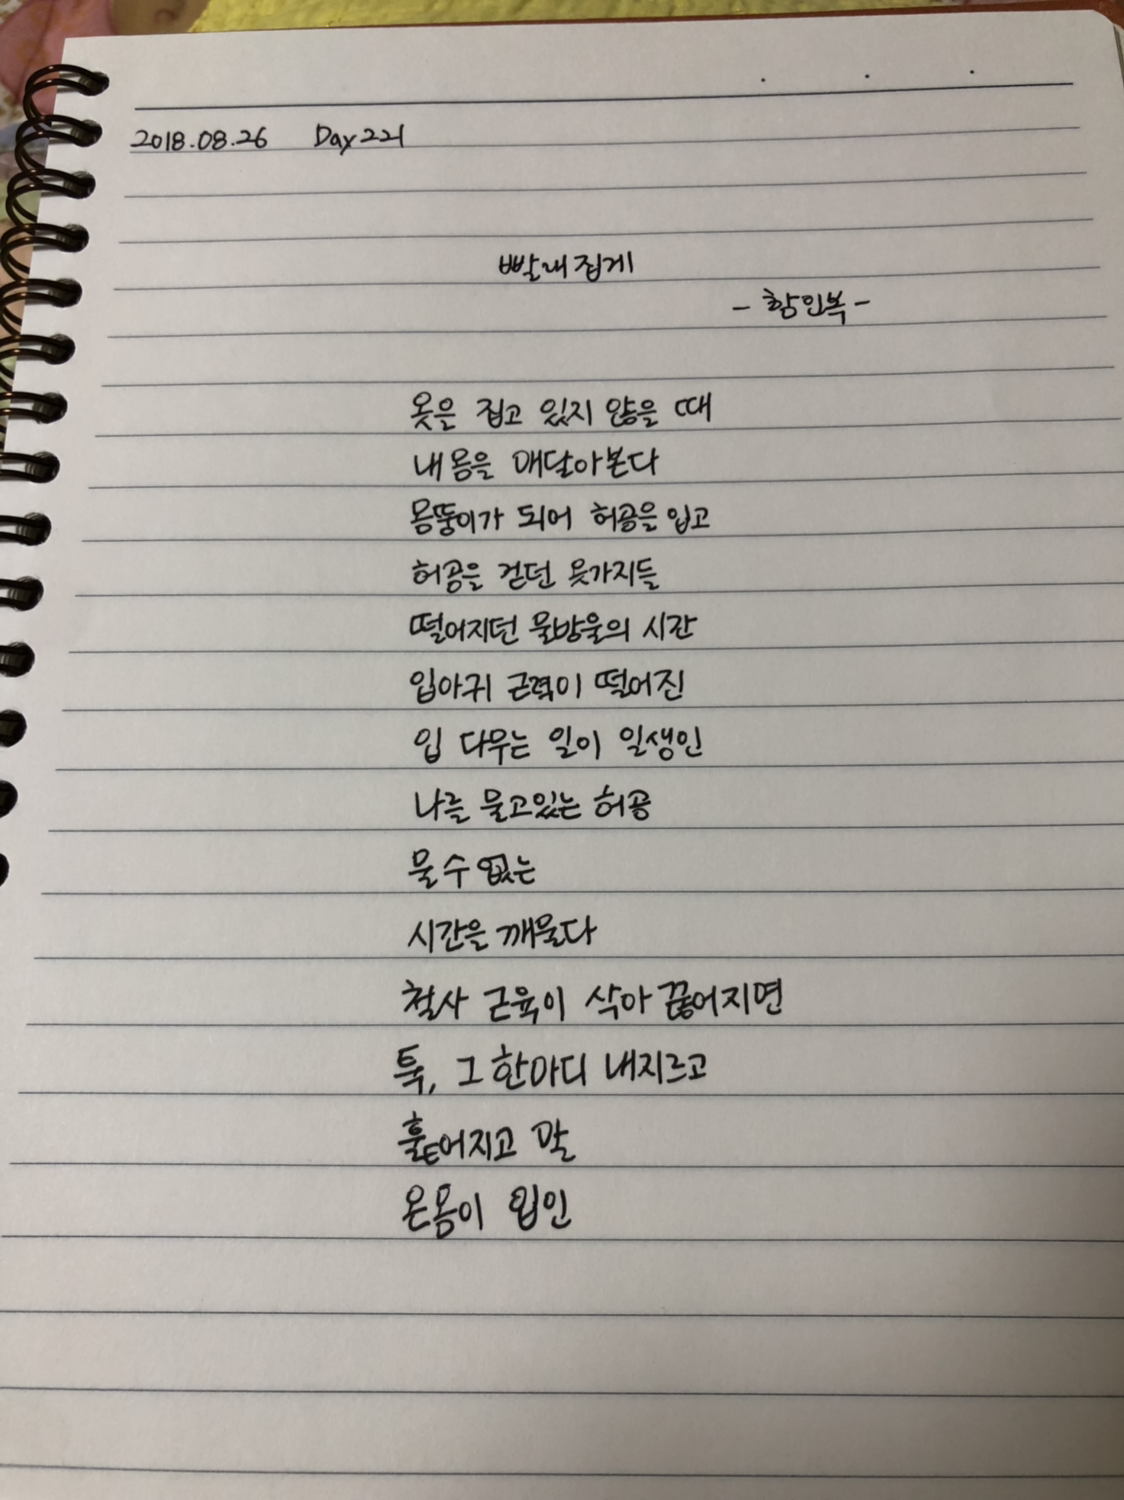 2018.08.26 Day 221
빨래집게
- 황인복 -
옷을 집고 있지 않을 때
내 몸을 매달아본다
몸뚱이가 되어 허공을 입고
허공을 걷던 옷가지들
떨어지던 물방울의 시간
입아귀 근력이 떨어진
입 다무는 일이 일생인
나를 물고있는 허공
물 수 없는
시간을 깨물다
철사 근육이 삭아 끊어지면
툭, 그 한마디 내지르고
흩어지고 말
온몸이 입인